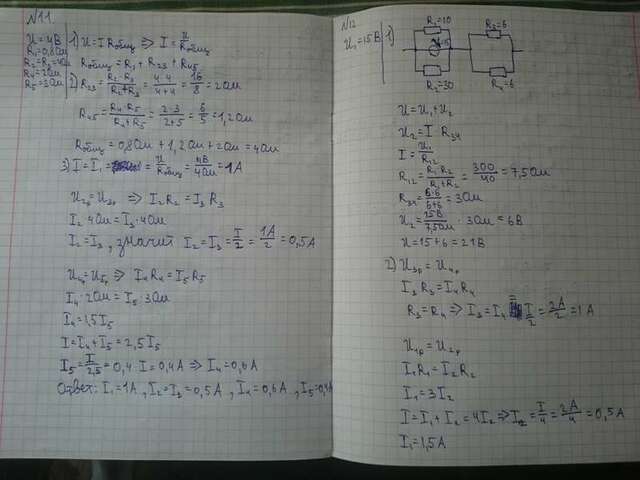 №11.
U=4В
R₁=0,8Ом
R₂=R₃=4Ом
R₄=2Ом
R₅=3Ом
1) U=I Rобщ => I=U/Rобщ
Rобщ=R₁+R₂₃+R₄₅
2) R₂₃=R₂·R₃/R₂+R₃=4·4/4+4=16/8=2Ом
R₄₅=R₄·R₅/R₄+R₅=2·3/2+5=6/5=1,2Ом
Rобщ=0,8Ом+1,2Ом+2Ом=4Ом
3) I=I₁=U/Rобщ=4В/4Ом=1А
U₂=U₃ => I₂R₂=I₃R₃
I₂·4Ом=I₃·4Ом
I₂=I₃, значит I₂=I₃=I/2=1А/2=0,5А
U₄=U₅ => I₄R₄=I₅R₅
I₄·2Ом=I₅·3Ом
I₄=1,5I₅
I=I₄+I₅=2,5I₅
I₅=I/2,5=0,4·I=0,4А => I₄=0,6А
Ответ: I₁=1А, I₂=I₃=0,5А, I₄=0,6А, I₅=0,4А
№12
U₁=15В
1)
R₁=10
R₂=30
R₃=6
R₄=6
U=U₁+U₂
U₂=I R₃₄
I=U₁/R₁₂
R₁₂=R₁·R₂/R₁+R₂=300/40=7,5Ом
R₃₄=6·6/6+6=3Ом
U₂=15В/7,5Ом·3Ом=6В
U=15+6=21В
2) U₃=U₄
I₃R₃=I₄R₄
R₃=R₄ => I₃=I₄=I/2=2А/2=1А
U₁=U₂
I₁R₁=I₂R₂
I₁=3I₂
I=I₁+I₂=4I₂ => I₂=I/4=2А/4=0,5А
I₁=1,5А